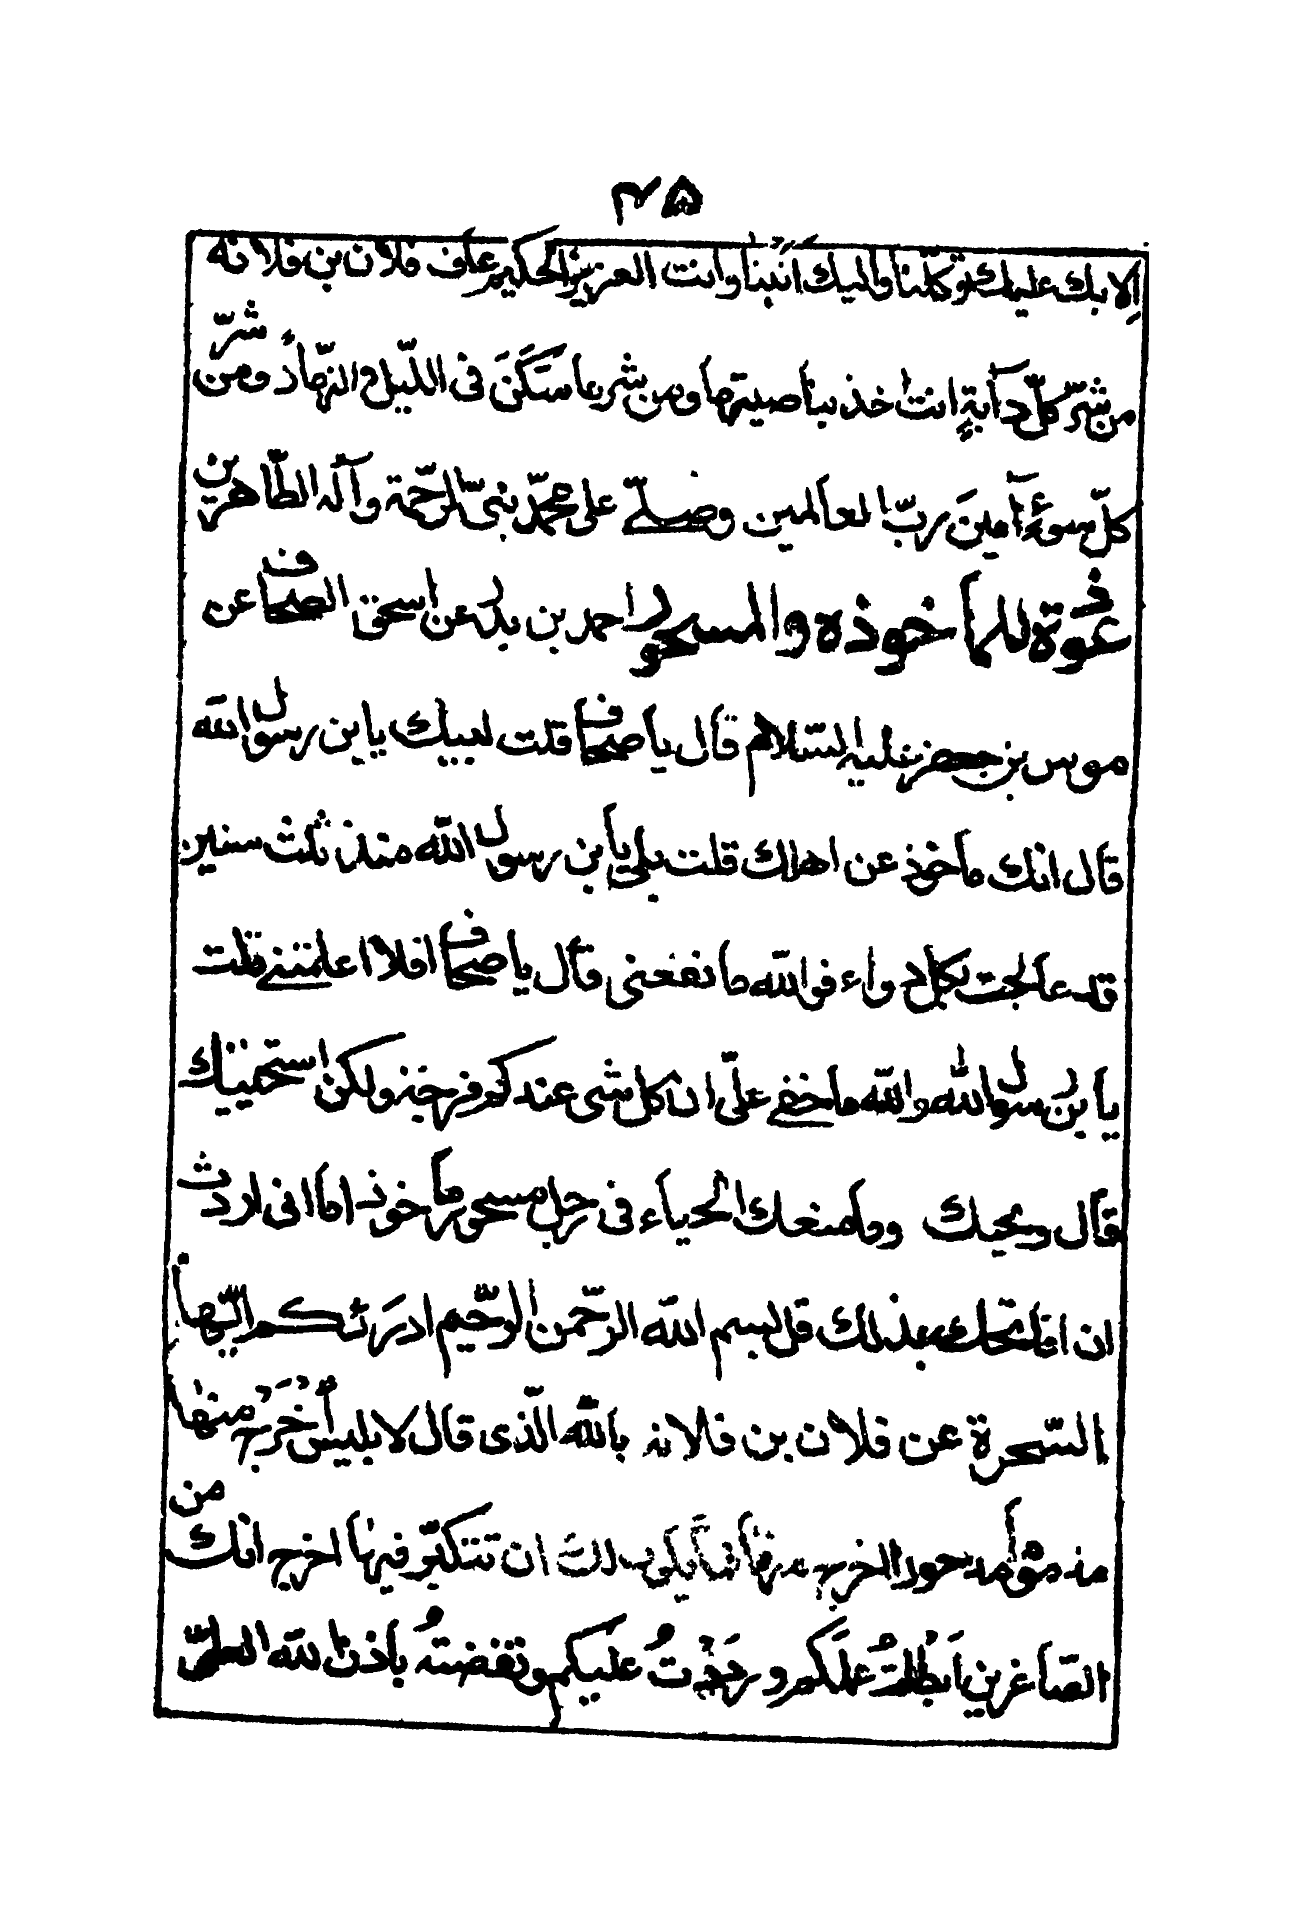 ٤٥
الا بك عليك توكلنا واليك انبنا وانت العزيز الحكيم عاف فلان بن فلانه
من شرّ كلّ دآبة انت اخذ بناصيتها ومن شر ما سَكَنَ فى اللّيل والنّهار ومن شرّ
كلّ سوءٍ آمينَ ربّ العالمين وصلّى على محمّد نبىّ الرّحمة وآله الطّاهرين
عوذة للمأخوذه والمسحور احمد بن بدر عن اسحق الصحاف عن
موسى بن جعفر عليه السّلام قال يا صحاف قلت لبيك يا بن رسول الله
قال انك مأخوذ عن اهلك قلت بلى يا بن رسول الله منذ ثلث سنين
قد عالجت بكل دواء فوالله ما نفعنى قال يا صحاف افلا اعلمتنى قلت
يا بن رسول الله والله ما خفى علىّ ان كل شى عندكم فرجه ولكن استحييتك
قال ويحك وما منعك الحياء فى رجل مسحور مأخوذ اما انى اردت
ان افاتحك بذلك قل بسم الله الرّحمن الرّحيم ادرئكم ايّها
السّحرة عن فلان بن فلانه بالله الّذى قال لابليس أُخْرُجْ منها
مذؤما مدحورا اخرج منها فما يكون لك ان تتكبّر فيها اخرج انك من
الصّاغرين ابطلتُ عملكم ورددتُ عليكم ونقضتهُ باذن الله العلىّ